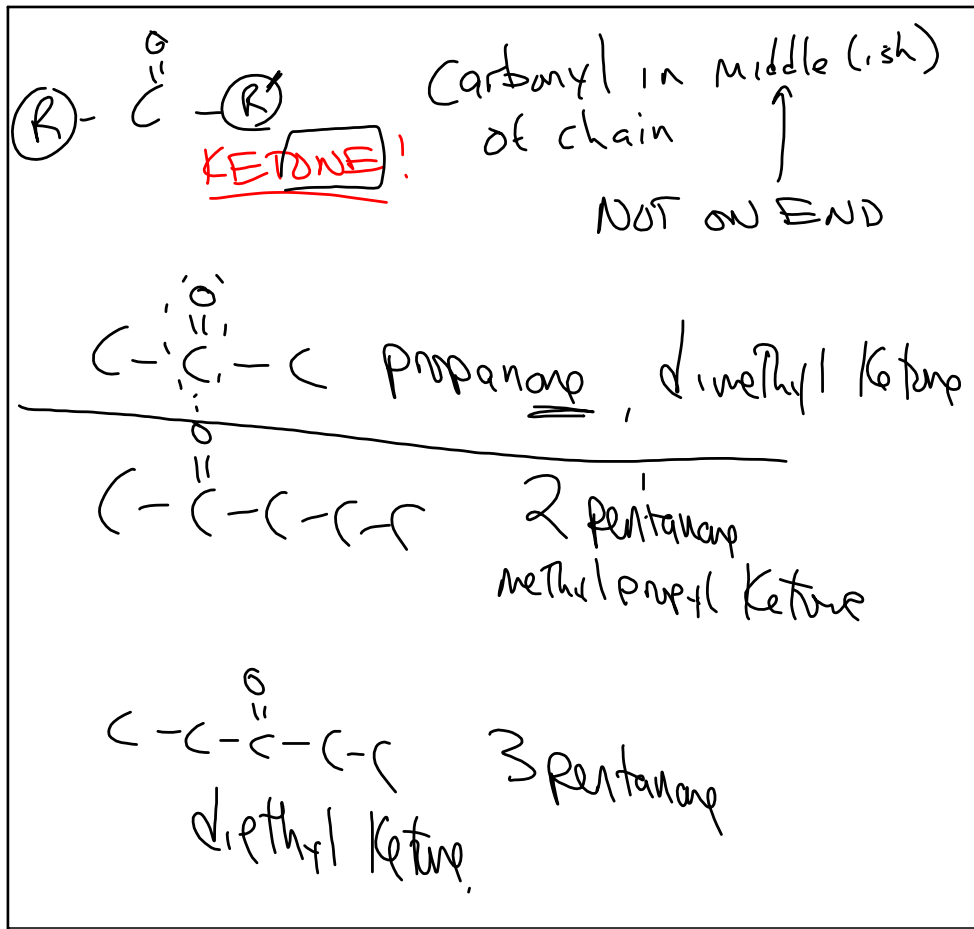 O
||
R - C - R'
KETONE!
Carbonyl in middle (ish)
of chain
NOT ON END
O
||
C - C - C propanone, dimethyl Ketone
O
||
C - C - C - C - C 2 pentanone
methyl propyl Ketone
O
||
C - C - C - C - C 3 pentanone
diethyl Ketone.